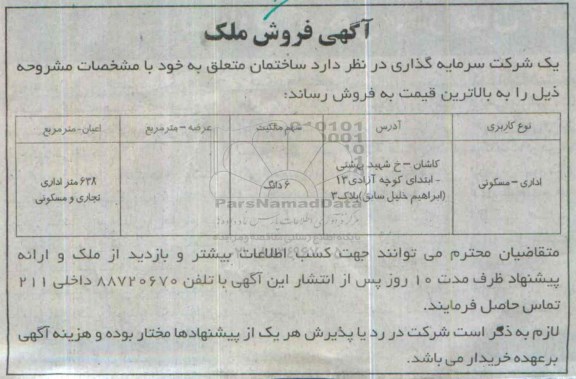 آگهی فروش ملک
یک شرکت سرمایه گذاری در نظر دارد ساختمان متعلق به خود با مشخصات مشروحه
ذیل را به بالاترین قیمت به فروش رساند:
نوع کاربری
آدرس
سهم مالکیت
عرصه – مترمربع
اعیان – مترمربع
اداری – مسکونی
کاشان – خ شهید بهشتی
– ابتدای کوچه آزادی ۱۳
(ابراهیم خلیل سابق) پلاک ۳
۶ دانگ
۶۳۸ متر اداری
تجاری و مسکونی
ParsNamadData
متقاضیان محترم می توانند جهت کسب اطلاعات بیشتر و بازدید از ملک و ارائه
پیشنهاد ظرف مدت ۱۰ روز پس از انتشار این آگهی با تلفن ۸۸۷۲۰۶۷۰ داخلی ۲۱۱
تماس حاصل فرمایند.
لازم به ذکر است شرکت در رد یا پذیرش هر یک از پیشنهادها مختار بوده و هزینه آگهی
برعهده خریدار می باشد.